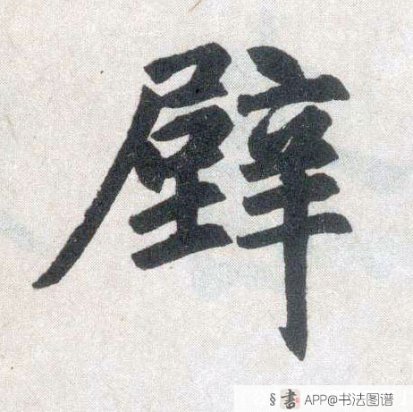 壁
§ 書 APP@书法图谱